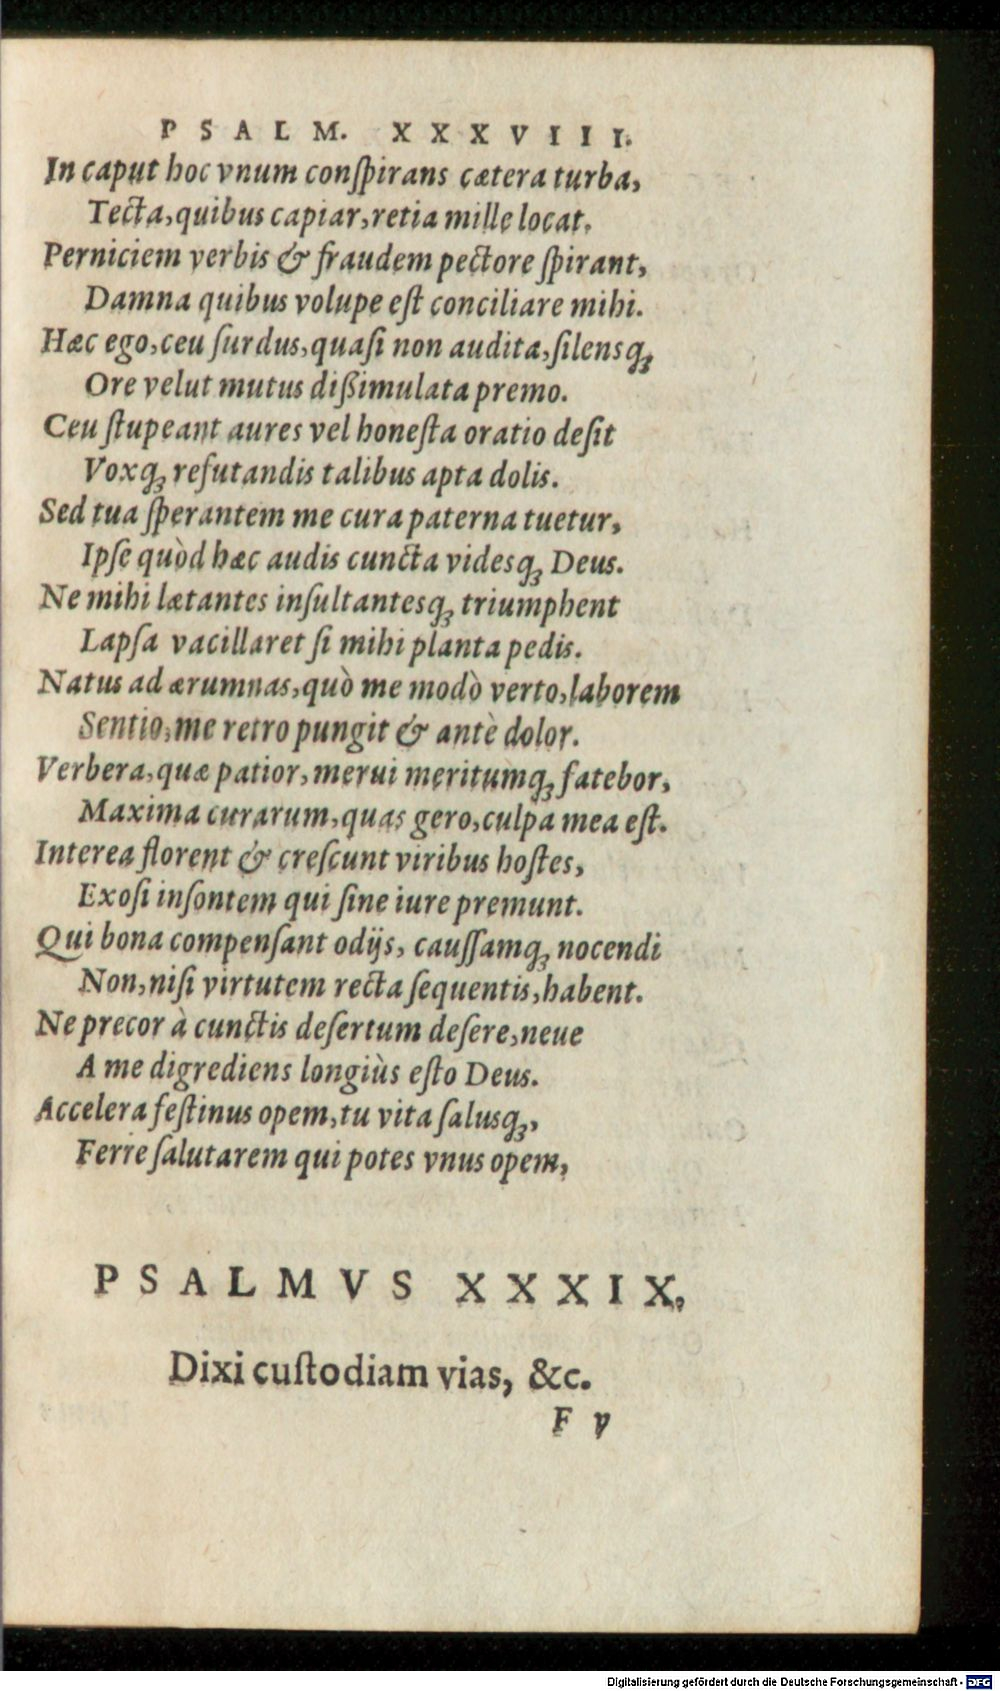 PSALM. XXXVIII.
In caput hoc vnum conſpirans cætera turba,
Tecta, quibus capiar, retia mille locat.
Perniciem verbis & fraudem pectore ſpirant,
Damna quibus volupe eſt conciliare mihi.
Hæc ego, ceu ſurdus, quaſi non audita, ſilensq́;
Ore velut mutus dißimulata premo.
Ceu ſtupeant aures vel honeſta oratio deſit
Voxq́; refutandis talibus apta dolis.
Sed tua ſperantem me cura paterna tuetur,
Ipſe quòd hæc audis cuncta videsq́; Deus.
Ne mihi lætantes inſultantesq́; triumphent
Lapſa vacillaret ſi mihi planta pedis.
Natus ad ærumnas, quò me modò verto, laborem
Sentio, me retro pungit & antè dolor.
Verbera, quæ patior, merui meritumq́; fatebor,
Maxima curarum, quas gero, culpa mea eſt.
Interea florent & creſcunt viribus hoſtes,
Exoſi inſontem qui ſine iure premunt.
Qui bona compenſant odijs, cauſſamq́; nocendi
Non, niſi virtutem recta ſequentis, habent.
Ne precor à cunctis deſertum deſere, neue
A me digrediens longiùs eſto Deus.
Accelera feſtinus opem, tu vita ſalusq́;,
Ferre ſalutarem qui potes vnus opem,
PSALMVS XXXIX,
Dixi cuſtodiam vias, &c.
F v
Digitalisierung gefördert durch die Deutsche Forschungsgemeinschaft - DFG